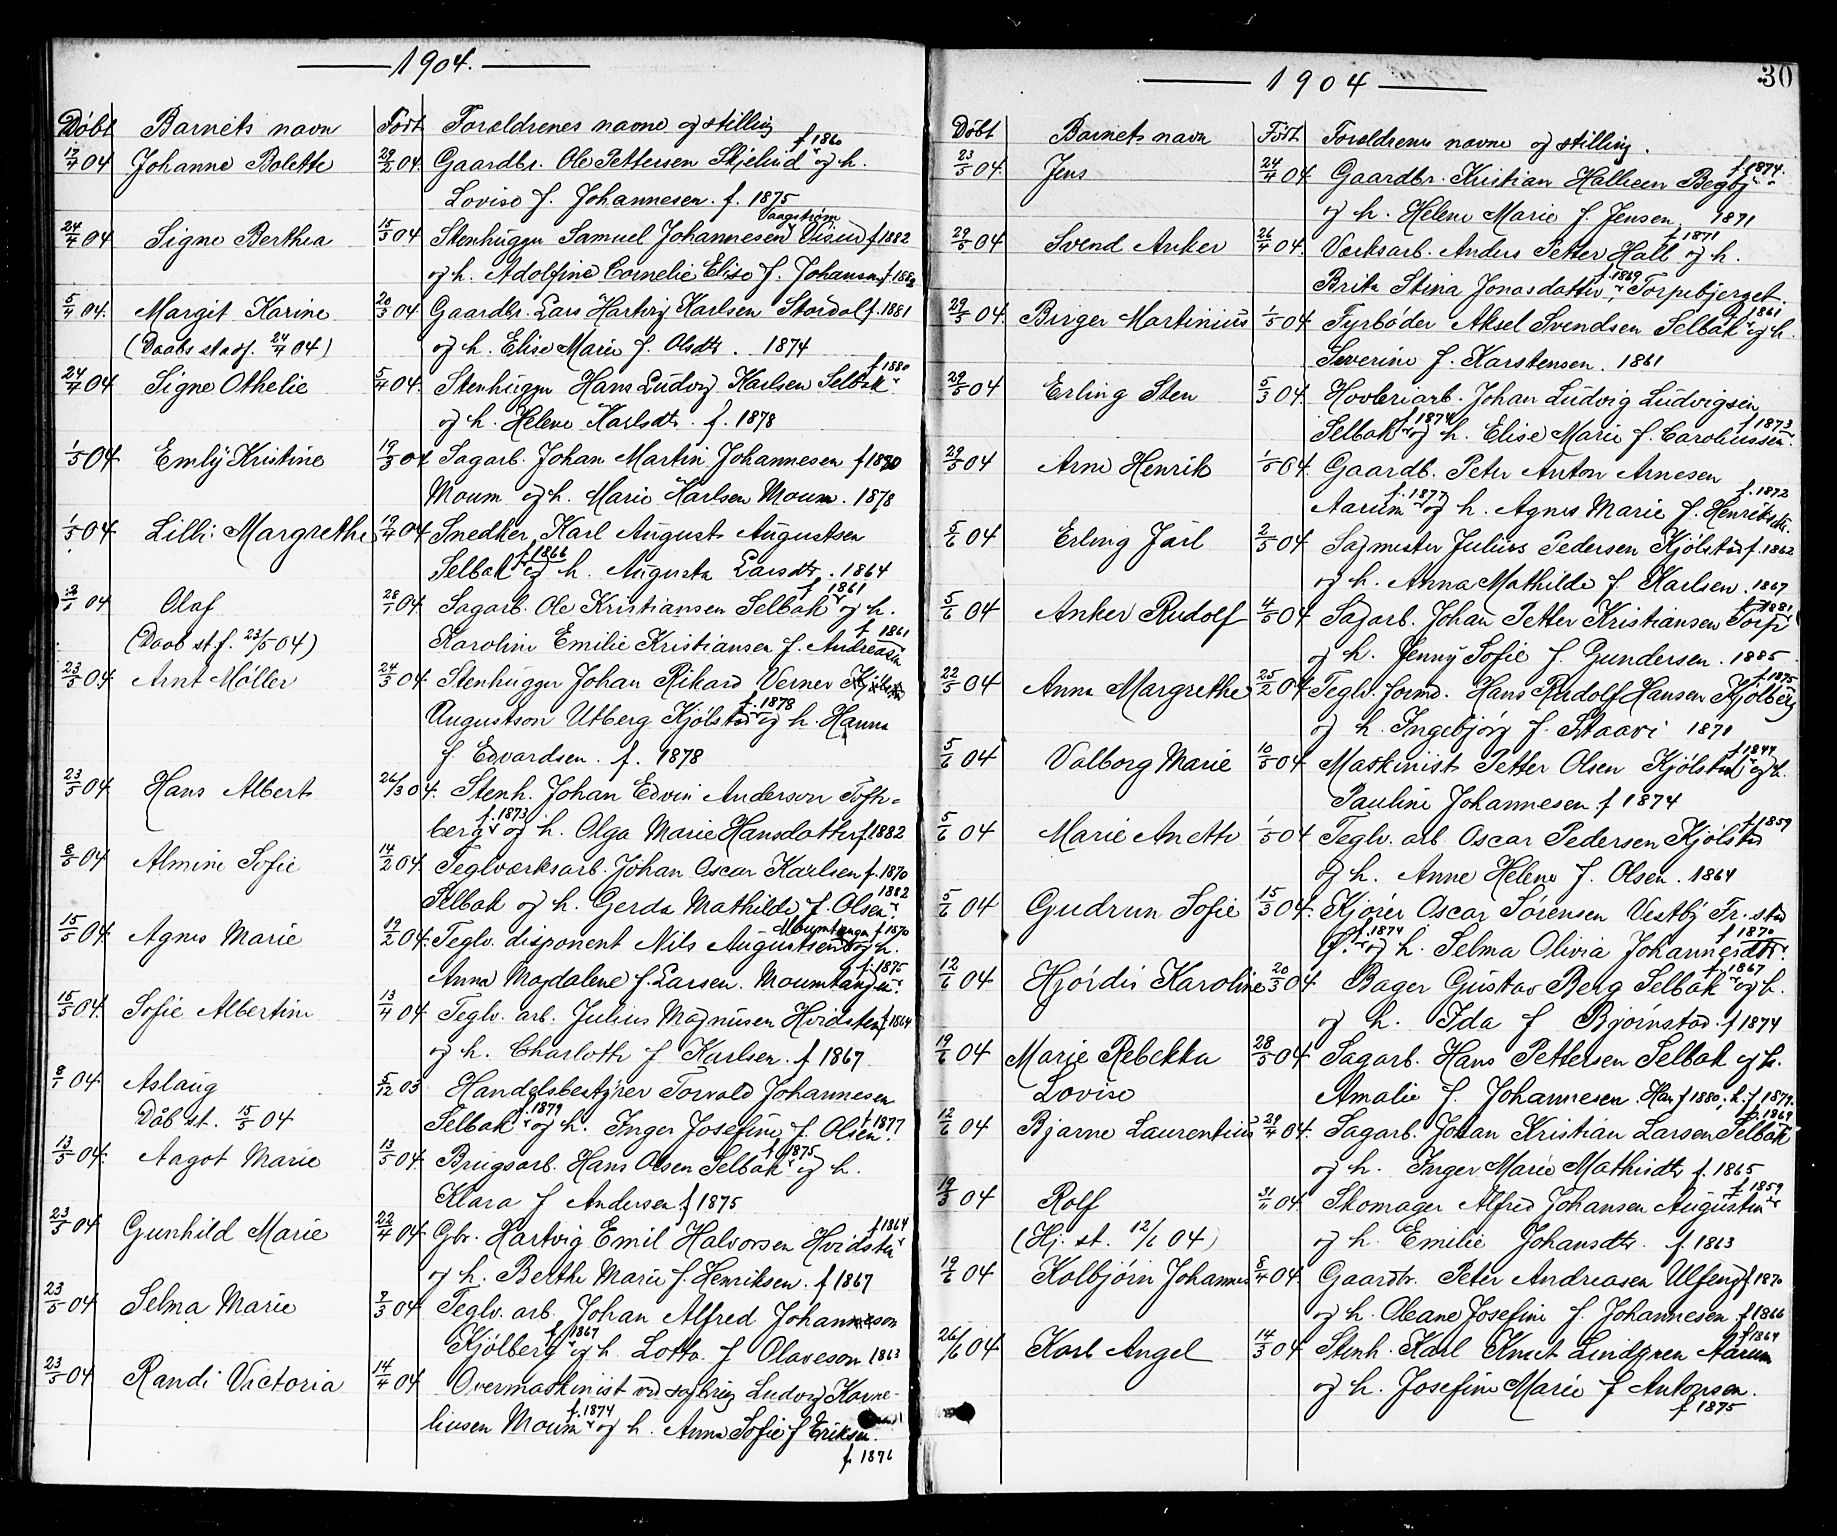 1904.
Døbt Barnets navn Født Foreldrenes navne og stilling
17/4 04 Johanne Bolette 29/2 04. Gaardbr. Ole Pettersen Skjelind f 1860 og h.
Lovise f. Johannesen. f. 1875
24/4 04 Signe Berthea 15/3 04 Stenhugger Samuel Johannesen Vaagstrøm f 1882
og h. Adolfine Cornelie Elise f. Johansen
5/4 04. Margit Karine 20/3 04 Gaardbr. Lars Hartvig Karlsen f. 1881
(Daabs stadf. 24/4 04) og h. Elise Marie f. Olsdtr. 1874
24/4 04 Signe Othelie 5/4 04. Stenhugger Hans Ludvig Karlsen Selbak f 1880
og h. Helene Karlsdtr. f. 1878
1/5 04 Emly Kristine 19/3 04 Sagarb. Johan Martin Johannesen
Moum og h. Marie Karlsen Moum. 1878
1/5 04 Lilli Margrethe 19/4 04 Snedker Karl August Augustsen
Selbak f 1866 og h. Augusta Larsdtr. 1864
04 Olaf 28/1 04 Sagarb. Ole Kristiansen Selbak f 1861 og h.
(Daab st. f. 23/5 04) Karoline Emilie Kristiansen f. Andreasen f 1861
23/5 04 Arnt Møller 24/3 04 Stenhugger Johan Rikard Verner
Augustson Utberg Kjølstad f. 1878 og h. Hanna
f Edvardsen. f. 1878
23/5 04 Hans Albert 26/3 04. Stenh. Johan Edvin Anderson Toft-
berg f. 1873 og h. Olga Marie Hansdatter f 1882
8/5 04 Almine Sofie 14/2 04 Teglværksarb. Johan Oscar Karlsen f. 1870
Selbak og h. Gerda Mathilde f. Olsen 1882
15/5 04 Agnes Marie 19/2 04. Teglv. disponent Nils Augustsen Moumtangen f 1870 og h.
Anna Magdalene f. Larsen. Moumtangen. f. 1875
15/5 04. Sofie Albertine 13/4 04 Teglv. arb. Julius Magnusen Hvidsten f 1864
og h. Charlotte f Karlsen. f 1867
8/1 04 Aslaug 5/12 03 Handelsbestyrer Torvald Johannesen
Dåb st. 15/5 04 Selbak f. 1879 og h. Inger Josefine f. Olsen. f 1877
13/5 04. Aagot Marie 13/5 04 Brugsarb. Hans Olsen Selbak f 1875 og h.
Klara f Andersen f 1875
23/5 04 Gunhild Marie 22/4 04 Gbr. Hartvig Emil Halvorsen Hvidsten f 1864
og h. Berthe Marie f. Henriksen. f 1867
23/5 04 Selma Marie 04 Teglv. arb. Johan Alfred Johannsson
Kjølberg f 1867 og h. Lotta f Olaveson 1863
23/5 04 Randi Victoria 14/4 04 Overmaskinist ved sagbrug Ludvig Korne-
liusen Moum f. 1874 og h. Anna Sofie f Eriksen.
f. 1876
30
1904
Døbt Barnets navn Født Foreldrenes navne og stilling.
23/5 04. Jens 24/4 04 Gaardbr. Kristian Hallesen Begby f 1874.
og h. Helene Marie f. Jensen 1871
29/5 04 Svend Anker 26/4 04. Værksarb. Anders Petter Hall f 1871 og h.
Brita Stina Jonasdatter f. 1869, Torpebjerget.
29/5 04. Birger Martinius 1/5 04 Fyrbøder Aksel Svendsen Selbak f 1861 og h.
Severine f. Karstensen. 1861
29/5 04 Erling Sten 5/3 04 Hovleriarb. Johan Ludvig Ludvigsen
Selbak f 1874 og h. Elise Marie f. Caroliussen f 1873
29/5 04 Arne Henrik 1/5 04. Gaardb. Peter Anton Arnesen
Aarum f. 1877 og h. Agnes Marie f. Henriksdtr. f. 1872
5/6 04 Erling Jarl 2/5 04 Sagmester Julius Pedersen Kjølstad f. 1862
og h. Anna Mathilde f Karlsen. 1867
5/6 04 Anker Rudolf 4/5 04 Sagarb. Johan Petter Kristiansen Torp f 1881
og h. Jenny Sofie f. Gundersen. 1885
22/5 04 Anna Margrethe 25/2 04 Teglv. formd. Hans Rudolf Hansen Kjølberg f. 1875
og h. Ingebjørg f. Staavi 1871
5/6 04 Valborg Marie 10/5 04 Maskinist Petter Olsen Kjølstad f 1844 og h.
Pauline Johannesen f 1874
5/6 04 Marie Anette 1/5 04 Teglv. arb. Oscar Pedersen Kjølstad f 1859
og h. Anne Helene f. Olsen. 1864
5/6 04 Gudrun Sofie 15/3 04. Kjører Oscar Sørensen Vestby Fr. stad
f. 1874 og h. Selma Olivia Johannesdtr. f 1870
12/6 04 Hjørdis Karoline 20/3 04 Bager Gustav Berg Selbak f 1867 og h.
og h. Ida f Bjørnstad. f 1874
19/6 04 Marie Rebekka 28/5 04 Sagarb. Hans Pettersen Selbak og h.
Lovise Amalie f. Johannesen. Han f 1880, h. f 1879.
12/6 04 Bjarne Laurentius 29/4 04. Sagarb. Johan Kristian Larsen Selbak f. 1869
og h. Inger Marie Mathisdtr. f. 1865
19/3 04 Rolf 04 Skomager Alfred Johansen Augustin f 1859
(Hj. st. 12/6 04) og h. Emilie Johansdtr. f. 1863
19/6 04 Kolbjørn Johannes 5/4 04 Gaardbr. Peter Andreasen Ulfeng f 1870
og h. Oleane Josefine f. Johannesen f 1866
26/6 04 Karl Angel 14/5 04 Stenh. Karl Knut Lindgren Aarum f 1864
og h. Josefine Marie f Antonsen.
f 1875